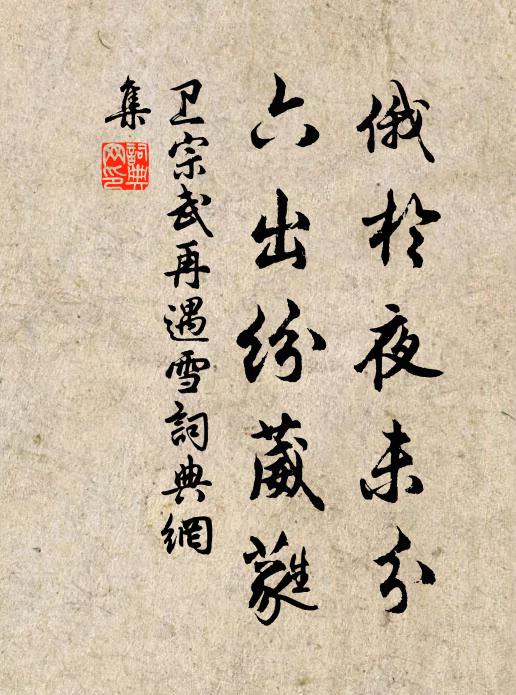 俄於夜未分
六出纷葳蕤
卫宗武再遇雪詞典網
集
詞典
网印